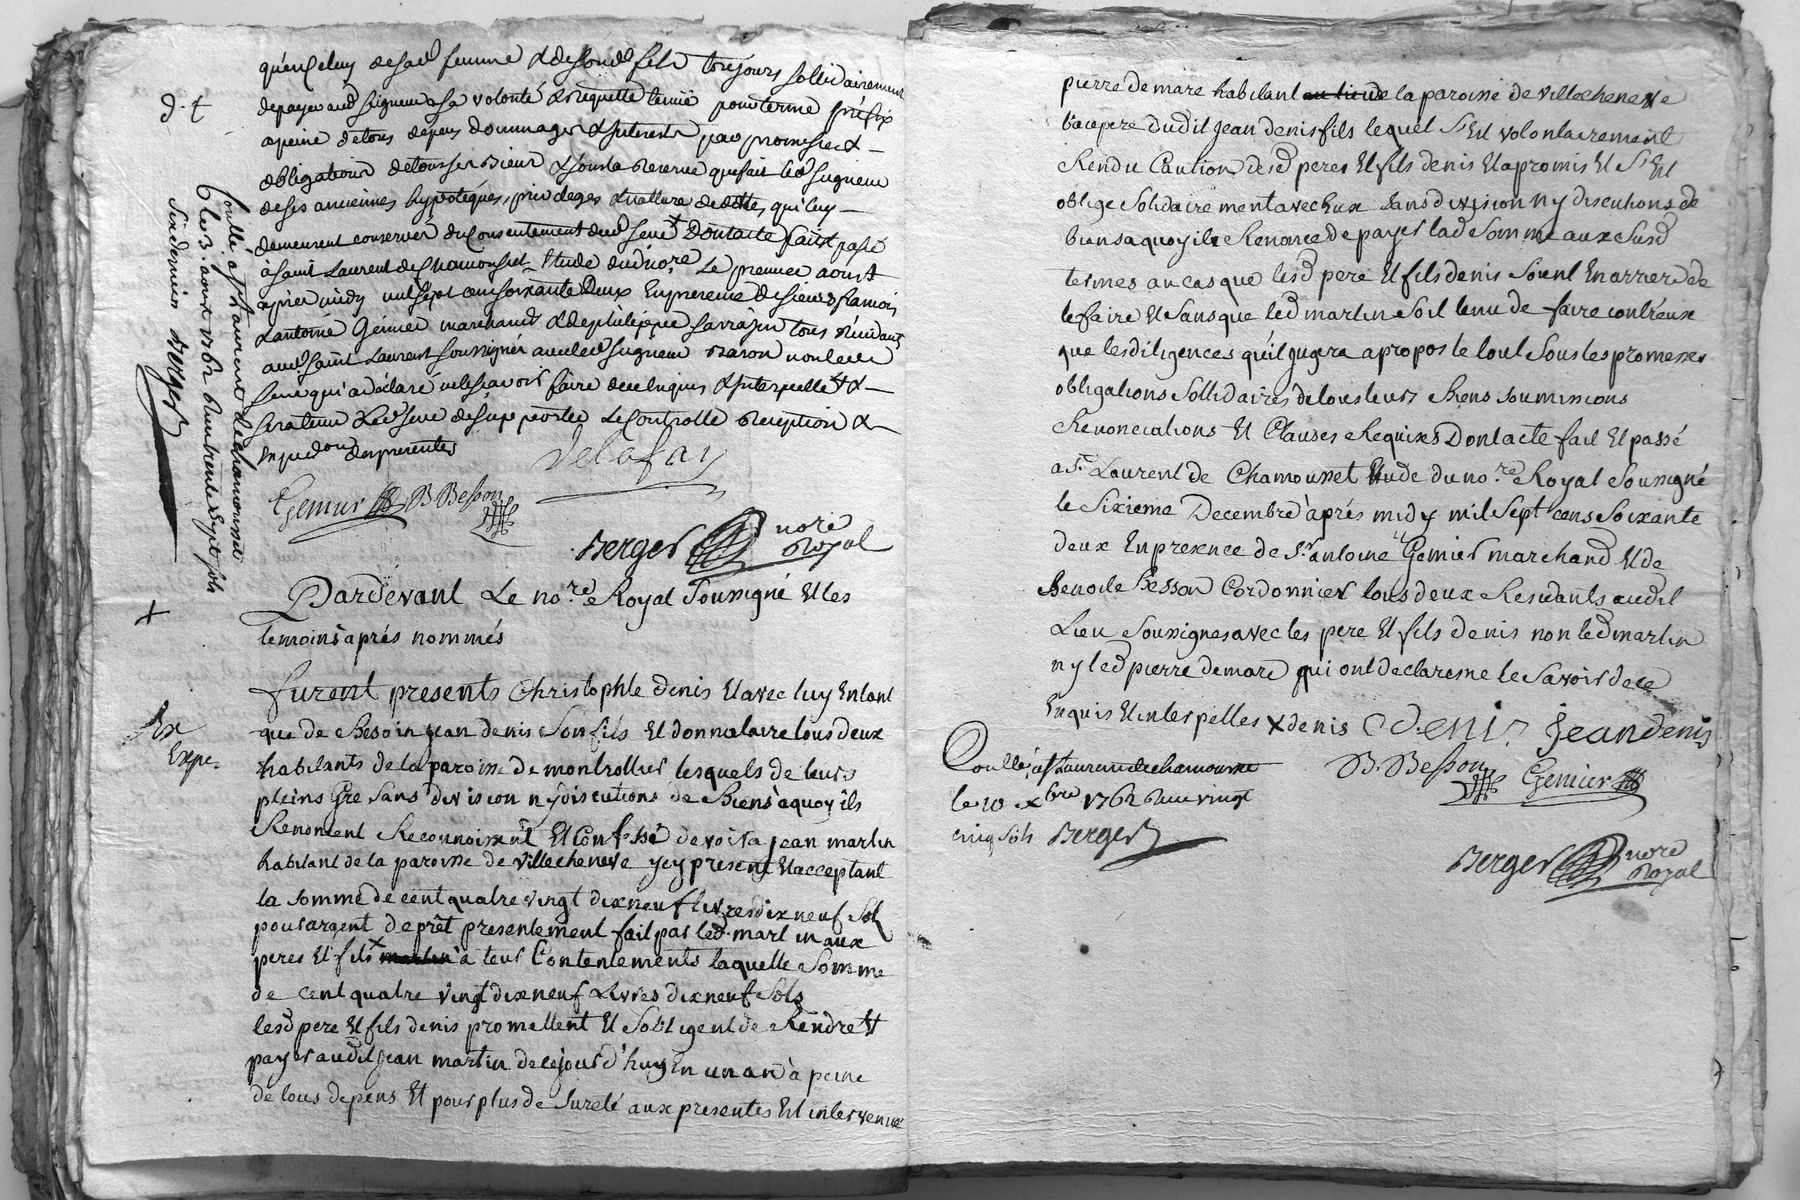 qu'en celuy de sad femme & de sond fils toujours sollidairement
de payer aud seigneur a sa volonté & requette pour terme préfix
a peine de tous depens dommages & interests par promesses &
obligations de tous ses biens & sous la reserve que fait led seigneur
de ses anciennes hypotéques, privileges & nature de dettes, qui luy
demeurent conservés du consentement dud Dont acte fait & passé
à Saint Laurent de Chamousset Etude dud nore. Le premier aoust
après midy mil sept cens soixante Deux En presence de sieurs françois
& antoine Gémier marchands & de philippe sarrazin tous résidants
aud Saint Laurent soussignés avec led seigneur Baron non led
qui a déclaré ne le sçavoir faire de ce enquis & interpellé &
Le Controlle &
des presentes
Delafay
Gemier B Besson
Berger nore
Royal
d. t
Conttlé a st Laurent de chamousset
le 3. aoust 1762 Reçu trente sept sols
six deniers Berger
Pardevant Le nore. Royal Soussigné Et les
temoins aprés nommés
furent presents Christophle denis Et avec luy Entant
que de Besoin jean denis Son fils Et donnataire tous deux
habitants de la paroisse de montrottier lesquels de leurs
pleins Gre Sans division ny discutions de Biens a quoy ils
Renoncent Reconnoissent Et Confessé devoir a jean martin
habitant de la paroisse de villecheneve ycy present Et acceptant
la somme de cent quatre vingt dix neuf livres dix neuf Sols
pour argent de prêt presentement fait par led. martin aux
peres Et fils x martin a leur Contentements laquelle Somme
de cent quatre vingt dix neuf Livres dix neuf Sols
lesd pere Et fils denis promettent Et Sobligent de Rendre Et
payer audit jean martin de ce jour d'huy En un an à peine
de tous depens Et pour plus de Sureté aux presentes Est intervenue
Exx
Expe.
pierre demare habitant au lieu de la paroisse de villecheneve
beaupere dudit jean denis fils lequel S'Est volontairement
Rendu Caution desd peres Et fils denis Et a promis Et S'Est
oblige Solidairement avec Eux Sans division ny discutions de
biens a quoy il Renonce de payer lad Somme aux Susd
termes au cas que lesd pere Et fils denis Soient En arriere de
le faire Et Sans que led martin Soit tenu de faire contreux
que les diligences qu'il jugera apropos le tout Sous les promesses
obligations Sollidaires de tous leurs Biens soumissions
Renonciations Et Clauses Requises Dont acte fait Et passé
a St. Laurent de Chamousset Etude du nore. Royal Soussigné
le Sixieme Decembre aprés midy mil Sept cens Soixante
deux En presence de Sr antoine Gemier marchand Et de
Benoite Besson Cordonnier tous deux Residants audit
Lieu Soussignes avec les pere Et fils denis non led martin
ny led pierre demare qui ont declare ne le Savoir de ce
Enquis Et interpelles x denis C Denis jean denis
B. Besson Gemier
Conttlé, a st Laurent de chamousset
le 10 xbre 1762 Reçu vingt
cinq sols Berger
Berger nore
Royal